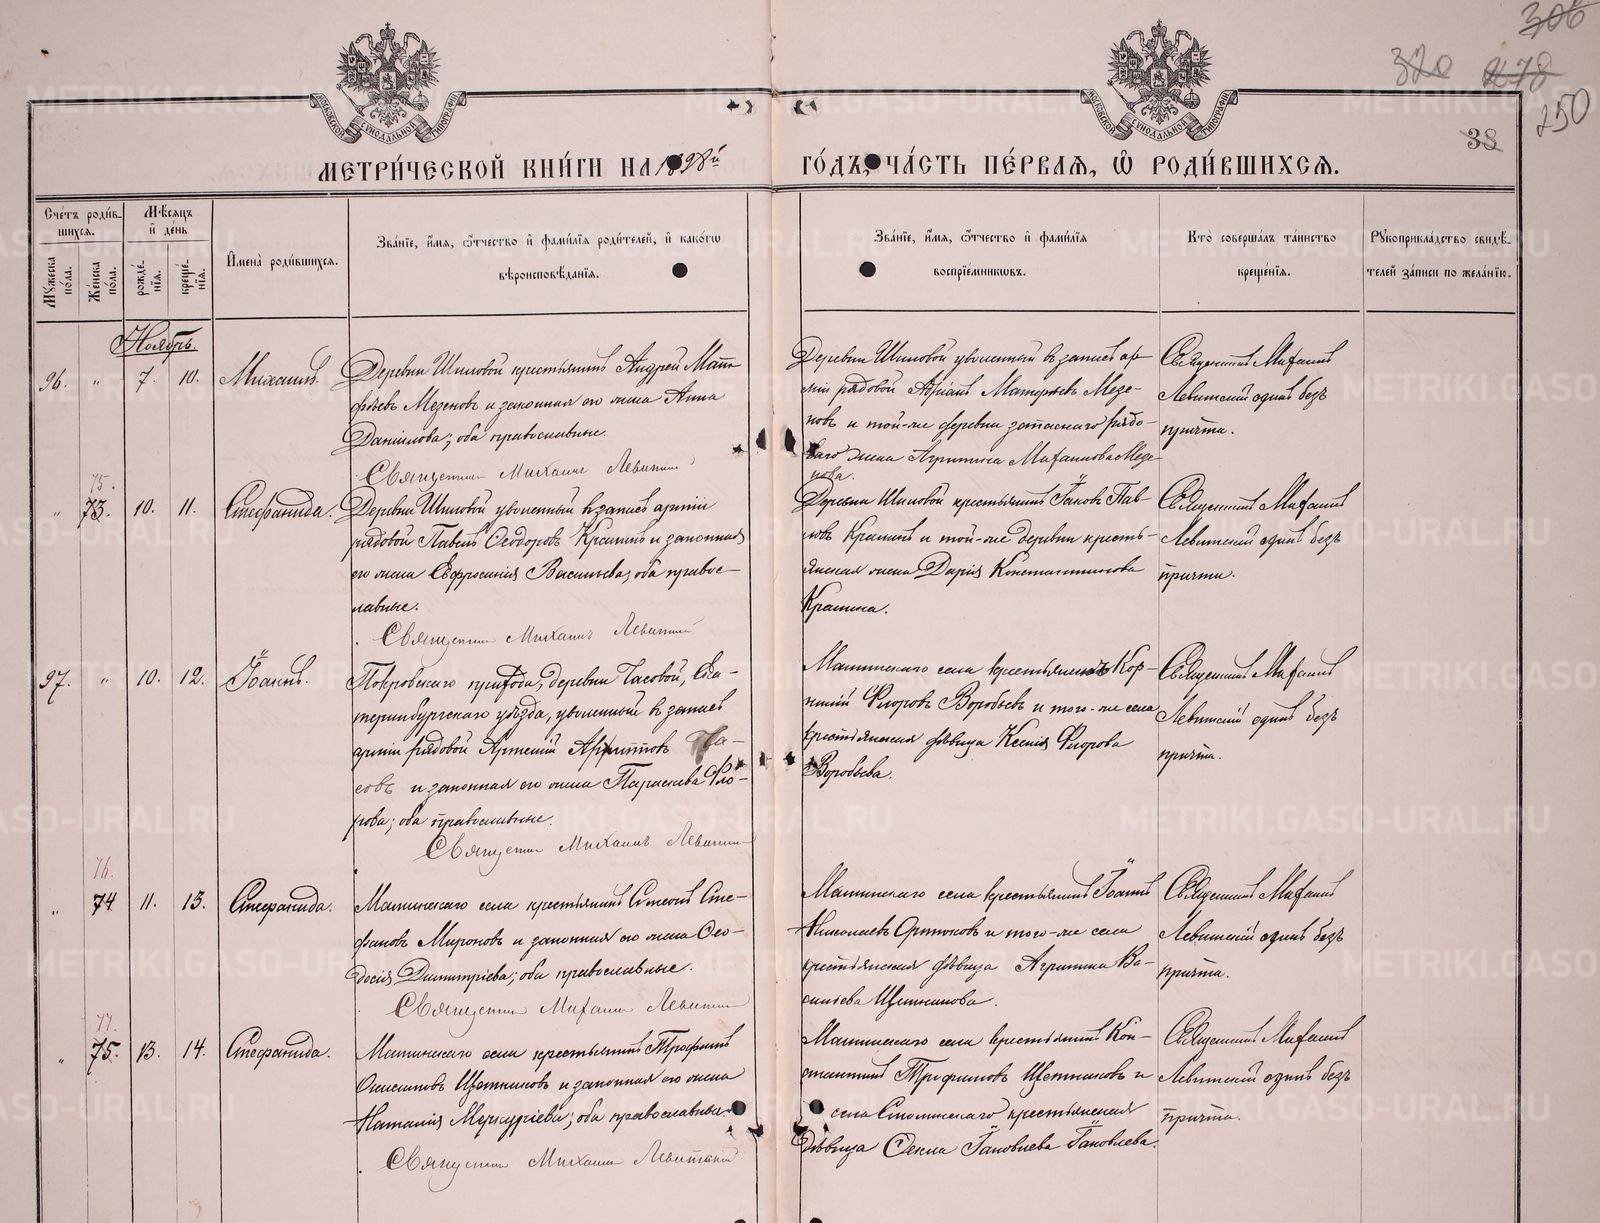 306
320 278
250
38
МОСКОВСКОЙ СУНОДАЛЬНОЙ ТИПОГРАФІИ
МОСКОВСКОЙ СУНОДАЛЬНОЙ ТИПОГРАФІИ
МЕТРИ́ЧЕСКОЙ КНИ́ГИ НА 1898й ГО́ДЪ, ЧА́СТЬ ПЕ́РВАѦ, Ѽ РОДИ́ВШИХСѦ.
Сче́тъ роди́в-
шихсѧ.
Мꙋ́жеска по́ла.
Же́нска по́ла.
Мѣ́сѧцъ
и҆ де́нь
рожде́-
нїѧ.
креще́-
нїѧ.
И҆мена̀ роди́вшихсѧ.
Зва́нїе, и҆́мѧ, ѻ҆́тчество и҆ фами́лїѧ роди́телей, и҆ како́гѡ
вѣроисповѣ́данїѧ.
Зва́нїе, и҆́мѧ, ѻ҆́тчество и҆ фами́лїѧ
воспрїе́мникѡвъ.
Кто̀ соверша́лъ та́инство
креще́нїѧ.
Рꙋкоприкла́дство свидѣ́-
телей за́писи по жела́нїю.
Ноябрь.
96. " 7. 10. Михаилъ.
Деревни Шиловой крестьянинъ Андрей Мат-
фѣевъ Мезеновъ и законная его жена Анна
Даніилова; оба православные.
Священникъ Михаилъ Левитскій
Деревни Шиловой уволенный въ запасъ ар-
міи рядовой Адріанъ Матфѣевъ Мезе-
новъ и той-же деревни запаснаго рядо-
ваго жена Агрипина Михаилова Мезе-
нова.
Священникъ Михаилъ
Левитскій одинъ безъ
причта.
75.
" 73. 10. 11. Стефанида.
Деревни Шиловой уволенный въ запасъ арміи
рядовой Павелъ Ѳеодоровъ Крапинъ и законная
его жена Евфросинія Васильева; оба правос-
лавные.
Священникъ Михаилъ Левитскій
Деревни Шиловой крестьянинъ Іаковъ Пав-
ловъ Крапинъ и той-же деревни кресть-
янская жена Дарія Константинова
Крапина.
Священникъ Михаилъ
Левитскій одинъ безъ
причта.
97. " 10. 12. Іоаннъ.
Покровскаго прихода, деревни Часовой, Ека-
теринбургскаго уѣзда, уволенный въ запасъ
арміи рядовой Артемій
и законная его жена Параскева Фло-
рова; оба православные.
Священникъ Михаилъ Левитскій
Маминскаго села крестьянинъ Кор-
нилій Флоровъ Воробьевъ и того-же села
крестьянская дѣвица Ксенія Флорова
Воробьева.
Священникъ Михаилъ
Левитскій одинъ безъ
причта.
76.
" 74 11. 13. Стефанида.
Маминскаго села крестьянинъ Симеонъ Сте-
фановъ Мироновъ и законная его жена Ѳео-
досія Димитріева; оба православные.
Священникъ Михаилъ Левитскій
Маминскаго села крестьянинъ Іоаннъ
Николаевъ и того-же села
крестьянская дѣвица Агрипина Ва-
сильева Щетникова.
Священникъ Михаилъ
Левитскій одинъ безъ
причта.
77.
" 75. 13. 14. Стефанида.
Маминскаго села крестьянинъ Трофимъ
Щетниковъ и законная его жена
Наталія Меркуріева; оба православные.
Священникъ Михаилъ Левитскій
Маминскаго села крестьянинъ Кон-
стантинъ Трифоновъ Щетниковъ и
села крестьянская
дѣвица Ѳекла Іаковлева Іаковлева.
Священникъ Михаилъ
Левитскій одинъ безъ
причта.
METRIKI.GASO-URAL.RU